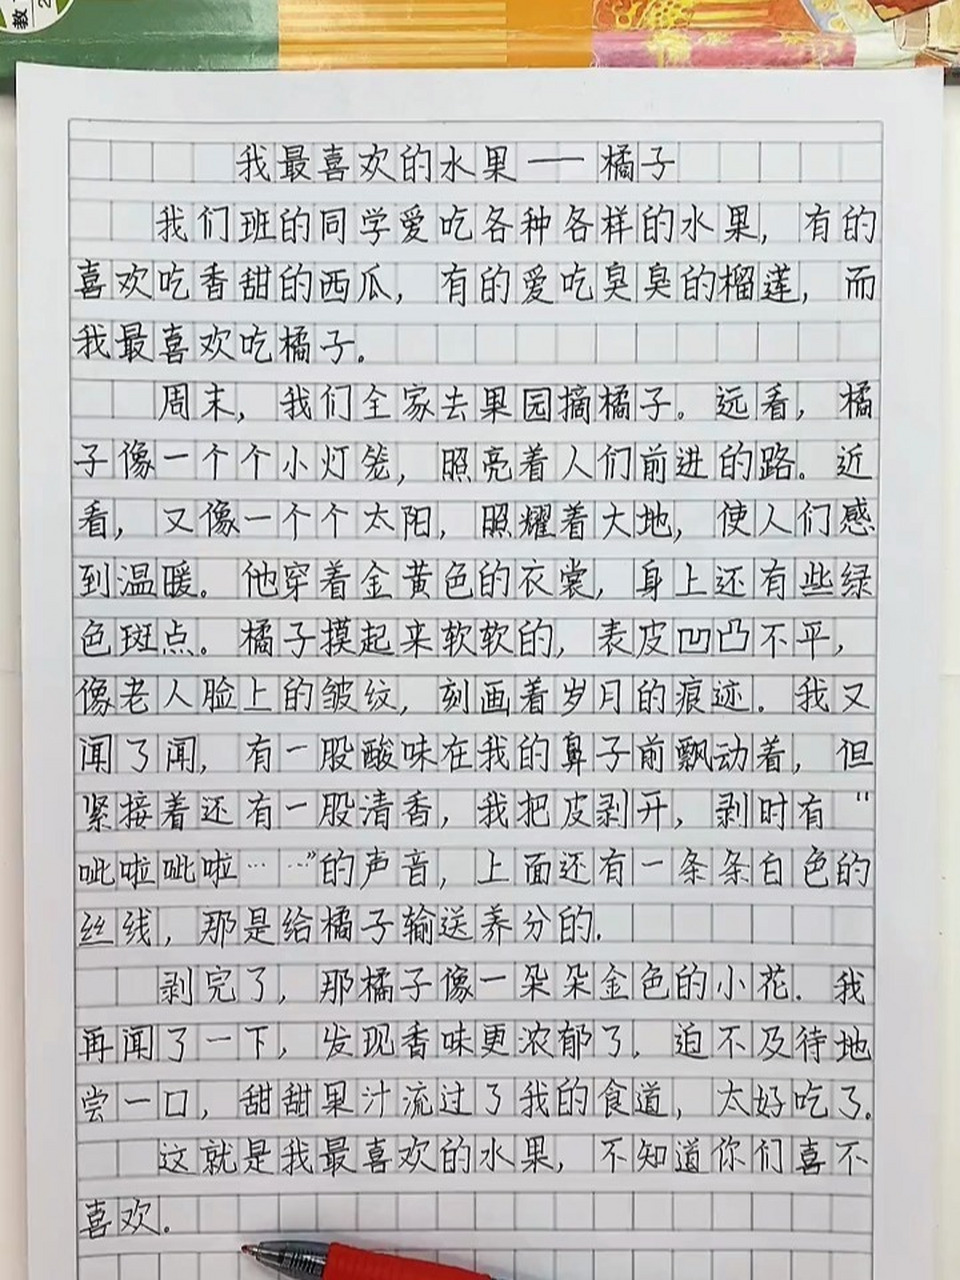 教
2
我最喜欢的水果——橘子
我们班的同学爱吃各种各样的水果，有的
喜欢吃香甜的西瓜，有的爱吃臭臭的榴莲，而
我最喜欢吃橘子。
周末，我们全家去果园摘橘子。远看，橘
子像一个个小灯笼，照亮着人们前进的路。近
看，又像一个个太阳，照耀着大地，使人们感
到温暖。他穿着金黄色的衣裳，身上还有些绿
色斑点。橘子摸起来软软的，表皮凹凸不平，
像老人脸上的皱纹，刻画着岁月的痕迹。我又
闻了闻，有一股酸味在我的鼻子前飘动着，但
紧接着还有一股清香，我把皮剥开，剥时有“
呲啦呲啦……”的声音，上面还有一条条白色的
丝线，那是给橘子输送养分的.
剥完了，那橘子像一朵朵金色的小花．我
再闻了一下，发现香味更浓郁了．迫不及待地
尝一口，甜甜果汁流过了我的食道，太好吃了.
这就是我最喜欢的水果，不知道你们喜不
喜欢.